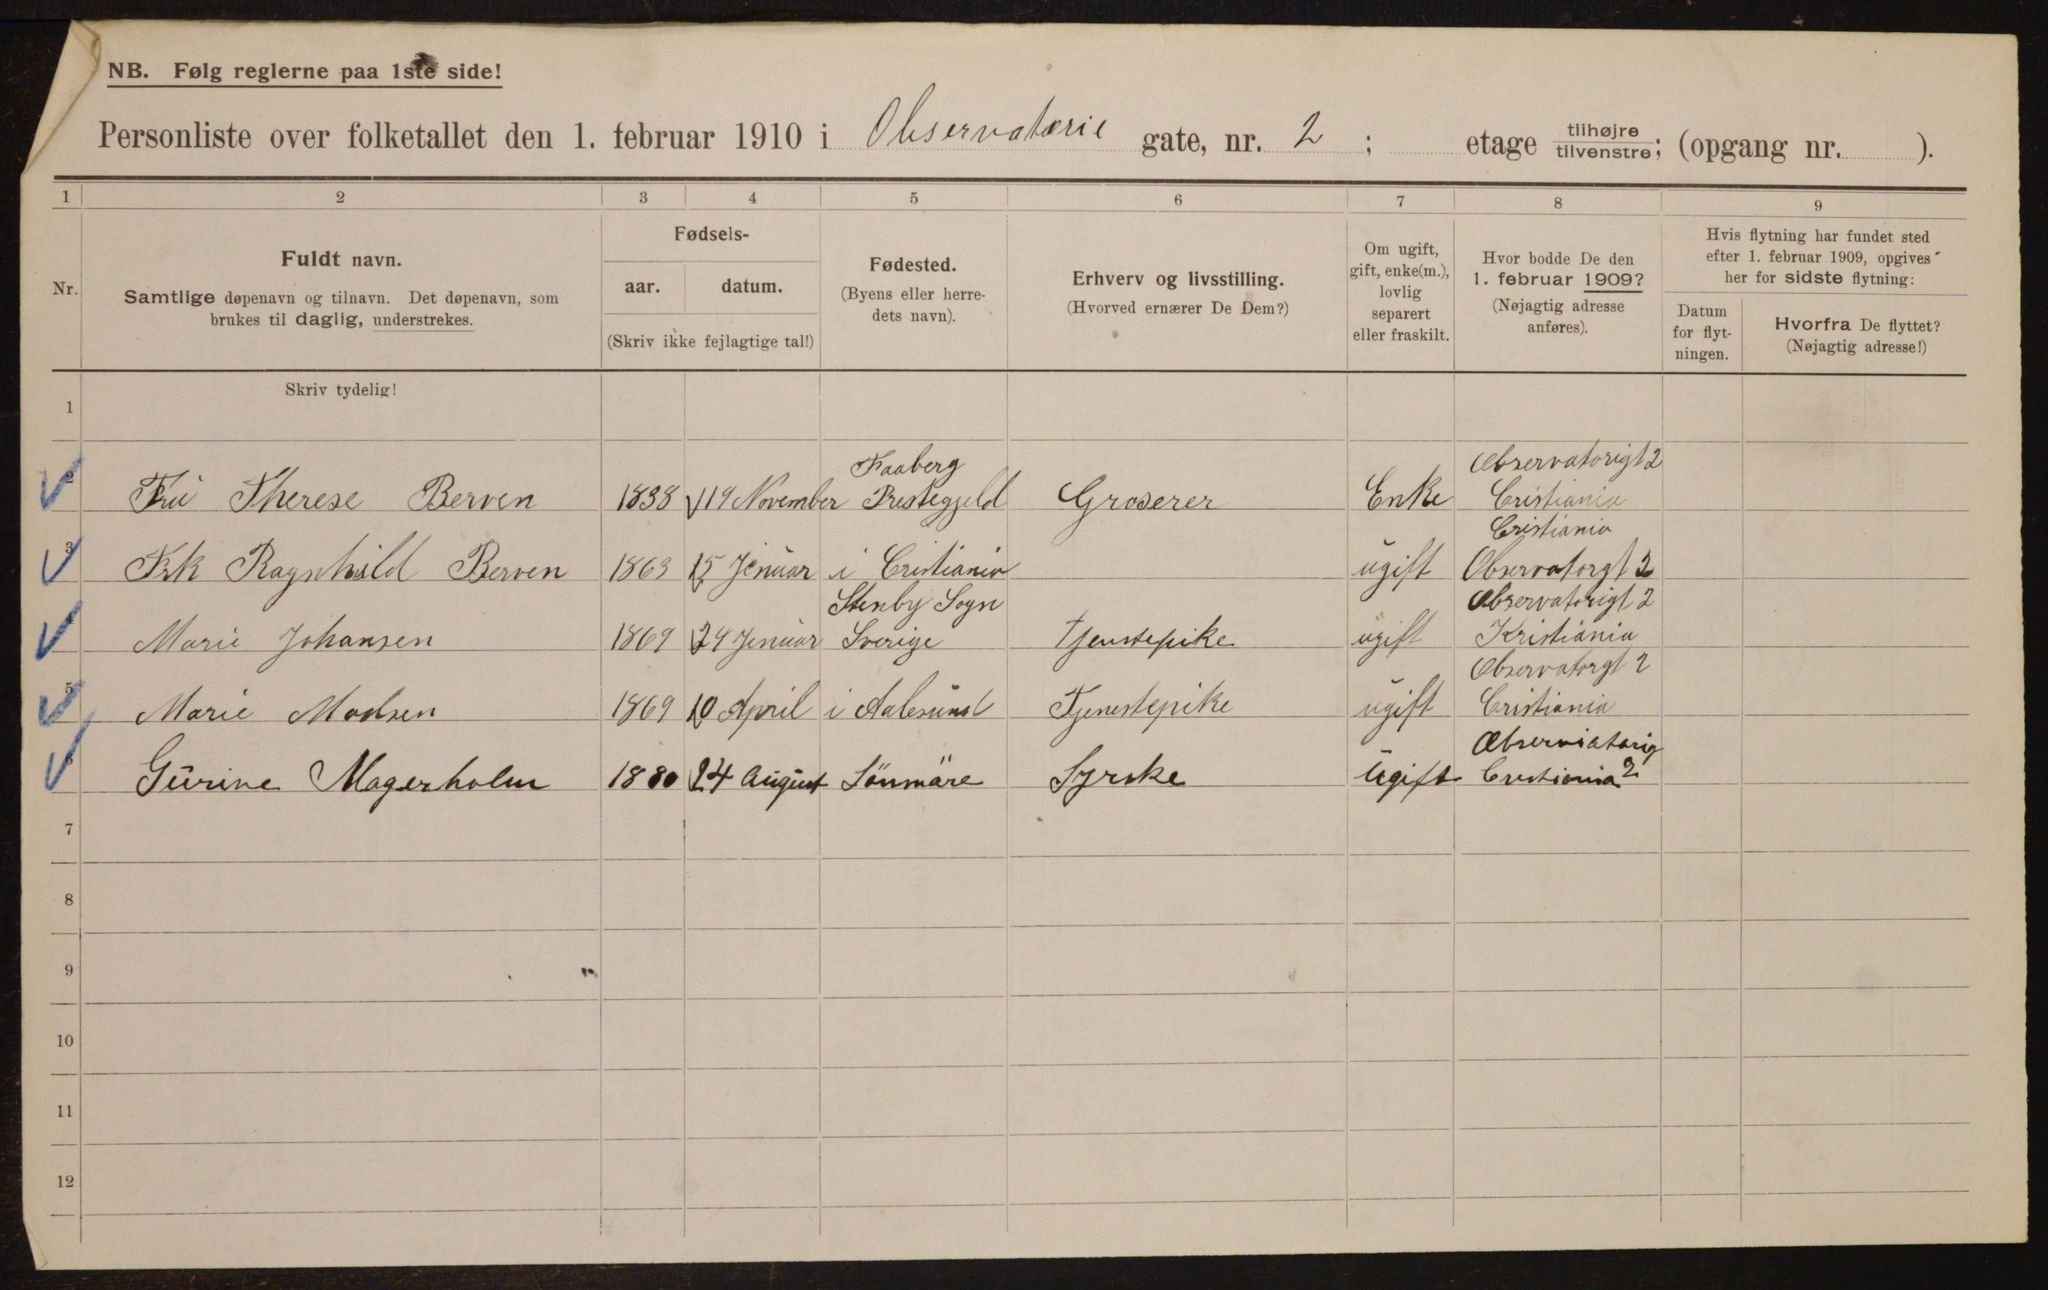 NB. Følg reglerne paa 1ste side!
Personliste over folketallet den 1. februar 1910 i Observatorie gate, nr. 2 ; etage tilhøjre / tilvenstre; (opgang nr. ).
1 2 3 4 5 6 7 8 9
Nr.
Fuldt navn.
Samtlige døpenavn og tilnavn. Det døpenavn, som
brukes til daglig, understrekes.
Fødsels-
aar. datum.
(Skriv ikke fejlagtige tal!)
Fødested.
(Byens eller herre-
dets navn).
Erhverv og livsstilling.
(Hvorved ernærer De Dem?)
Om ugift,
gift, enke(m.),
lovlig
separert
eller fraskilt.
Hvor bodde De den
1. februar 1909?
(Nøjagtig adresse
anføres).
Hvis flytning har fundet sted
efter 1. februar 1909, opgives
her for sidste flytning:
Datum
for flyt-
ningen.
Hvorfra De flyttet?
(Nøjagtig adresse!)
Skriv tydelig!
1
Faaberg Observatorigt 2
2 Fru Therese Berven 1838 19 November Prestegjeld Groserer Enke Cristiania
Cristiania
3 Frk Ragnhild Berven 1863 15 Jenuar i Cristiania ugift Observatorgt 2
Stenby Sogn Observatorigt 2
Marie Johansen 1869 24 Jenuar Sverige Tjenstepike ugift Kristiania
Observatorgt 2
5 Marie Madsen 1869 10 April i Aalesund Tjenestepike ugift Cristiania
Observiatorig
Gurine Magerholm 1880 24 August Sönmäre Syrske Ugift Cristiania 2
7
8
9
10
11
12